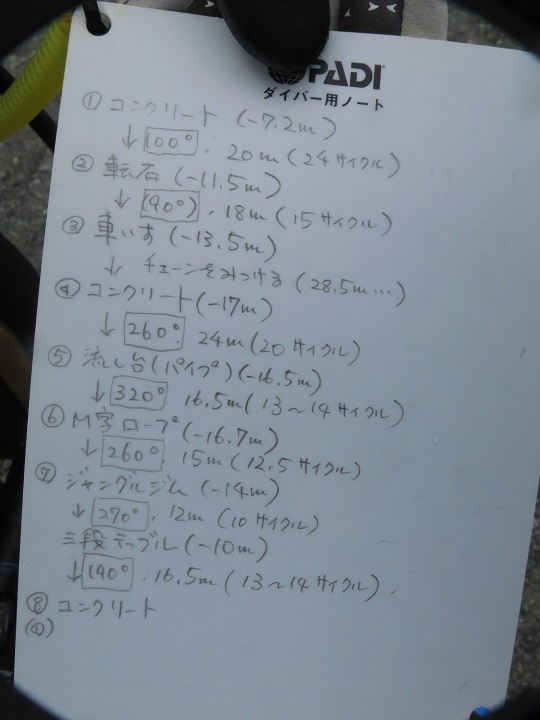 PADI
ダイバー用ノート
① コンクリート (-7.2m)
↓ 100°, 20m (24サイクル)
② 転石 (-11.5m)
↓ (90°), 18m (15サイクル)
③ 車いす (-13.5m)
↓ チェーンをみつける (28.5m…)
④ コンクリート (-17m)
↓ 260° 24m (20サイクル)
⑤ 流し台 (パイプ) (-16.5m)
↓ 320° 16.5m (13〜14サイクル)
⑥ M字ロープ (-16.7m)
↓ 260° 15m (12.5サイクル)
⑦ ジャングルジム (-14m)
↓ 270°, 12m (10サイクル)
三段テーブル (-10m)
↓ 190°, 16.5m (13〜14サイクル).
⑧ コンクリート
(①)